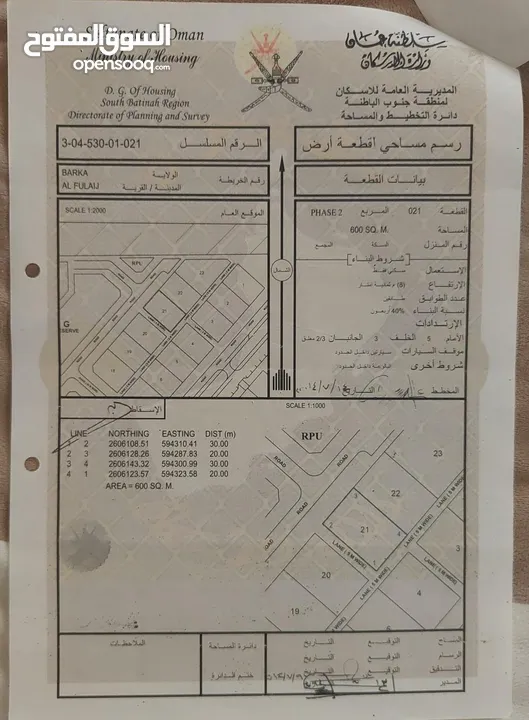 السوق المفتوح
opensooq.com
Sultanate of Oman
Ministry of Housing
سلطنة عمان
وزارة الإسكان
D. G. Of Housing
South Batinah Region
Directorate of Planning and Survey
المديرية العامة للاسكان
لمنطقة جنوب الباطنة
دائرة التخطيط والمساحة
3-04-530-01-021 الرقم المسلسل
رسم مساحي لقطعة أرض
BARKA الولاية
AL FULAIJ المدينة / القرية
رقم الخريطة
بيانات القطعة
SCALE 1:2000 الموقع العام
القطعة 021 المربع PHASE 2
المساحة 600 SQ. M.
رقم المنزل السكة المجمع
شروط البناء
الاستعمال سكني فقط
الإرتفاع
عدد الطوابق طابقين
نسبة البناء 40%
الإرتدادات
الأمام 5 الخلف 3 الجانبان 2/3
موقف السيارات سيارتين داخل الحدود
شروط أخرى
المخطط التاريخ
الشمال
RPU
G
SERVE
23
22
21
20
19
1
2
3
4
SCALE 1:1000
LINE NORTHING EASTING DIST (m)
2 2606108.51 594310.41 30.00
2 3 2606128.26 594287.83 20.00
3 4 2606143.32 594300.99 30.00
4 1 2606123.57 594323.58 20.00
AREA = 600 SQ. M.
RPU
ROAD
ROAD
ROAD
23
22
21
20
19
4
3
1
2
3
4
LANE ( 5 M WIDE)
LANE ( 5 M WIDE)
LANE ( 5 M WIDE)
LANE ( 5 M WIDE)
الملاحظات
دائرة المساحة
ختم الدائرة
المساح التوقيع التاريخ
الرسام التوقيع التاريخ
التدقيق التوقيع التاريخ
المدير